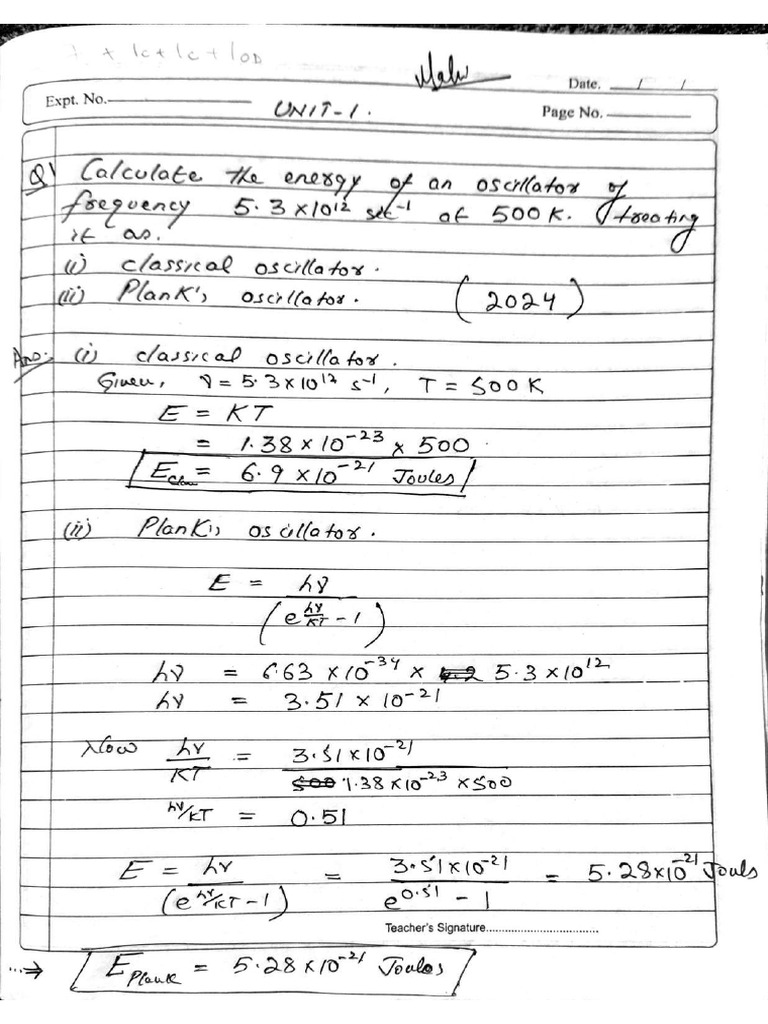 Date. __/__/__
Expt. No.
UNIT-1.
Page No.
Q1 Calculate the energy of an oscillator of
frequency 5.3×10¹² sec⁻¹ at 500K. treating
it as.
(i) classical oscillator.
(ii) PlanK's oscillator. (2024)
Ans: (i) classical oscillator.
Given, ν = 5.3×10¹² s⁻¹, T = 500K
E = KT
= 1.38 × 10⁻²³ × 500
E_Clas = 6.9 × 10⁻²¹ Joules
(ii) PlanK's oscillator.
E = hν / (e^(hν/KT) - 1)
hν = 6.63 × 10⁻³⁴ × 5.3×10¹²
hν = 3.51 × 10⁻²¹
Now hν/KT = 3.51×10⁻²¹ / 1.38×10⁻²³ ×500
hν/KT = 0.51
E = hν / (e^(hν/KT) - 1) = 3.51×10⁻²¹ / e^0.51 - 1 = 5.28×10⁻²¹ Jouls
Teacher's Signature
⇒ E_Plank = 5.28×10⁻²¹ Joules